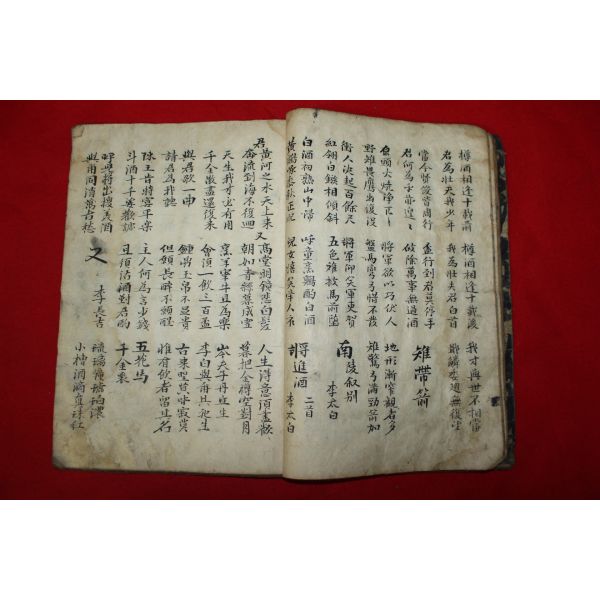 樽酒相逢十載前 樽酒相逢十載後 我才與世不相當
君為壯夫我少年 我為壯夫君白首 戢鱗委翅無復望
當今賢俊皆周行 盃行到君莫停手
君何為乎亦遑遑 破除萬事無過酒 雉帶箭
原頭火燒淨兀兀 將軍欲以巧伏人 地形漸窄觀者多
野雉畏鷹出復沒 盤馬彎弓惜不發 雉驚弓滿勁箭加
衝人決起百餘尺 將軍仰笑軍吏賀 南陵叙別
紅翎白鏃相傾斜 五色離披馬前墮 李太白
白酒初熟山中歸 呼童烹鷄酌白酒 將進酒 二首
黃鷄啄黍秋正肥 兒女嬉笑牽人衣 李太白
君黃河之水天上来 又高堂明鏡悲白髮 人生得意須盡歡
奔流到海不復迴 朝如青絲暮成雪 莫把金樽空對月
天生我才必有用 烹羊宰牛且為樂 岑夫子丹丘生
千金散盡還復来 會須一飲三百盃
與君歌一曲 鍾鼎玉帛不足貴 古来賢達皆寂寞
請君為我聽 但願長醉不願醒 惟有飲者留其名
陳王昔時宴平樂 主人何為言少錢 五花馬
斗酒十千恣歡謔 且須沽酒對君酌 千金裘
呼兒將出換美酒
與爾同消萬古愁 又 李長吉
琉璃鍾琥珀濃
小槽酒滴真珠紅